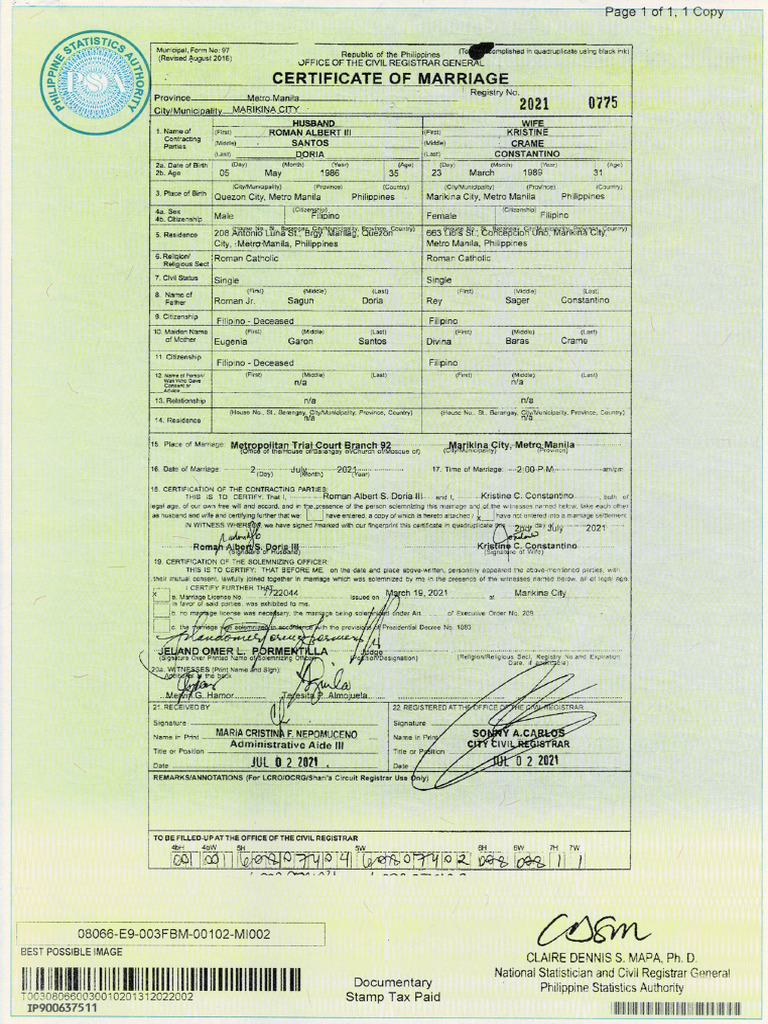 Page 1 of 1, 1 Copy
PHILIPPINE STATISTICS AUTHORITY
PSA
Municipal, Form No. 97
(Revised August 2016)
Republic of the Philippines
OFFICE OF THE CIVIL REGISTRAR GENERAL
accomplished in quadruplicate using black ink)
CERTIFICATE OF MARRIAGE
Province Metro Manila
Registry No.
City/Municipality MARIKINA CITY
2021 0775
HUSBAND WIFE
1. Name of Contracting Parties
(First) ROMAN ALBERT III (First) KRISTINE
(Middle) SANTOS (Middle) CRAME
(Last) DORIA (Last) CONSTANTINO
2a. Date of Birth (Day) (Month) (Year) (Age) (Day) (Month) (Year) (Age)
2b. Age 05 May 1986 35 23 March 1989 31
(City/Municipality) (Province) (Country) (City/Municipality) (Province) (Country)
3. Place of Birth Quezon City, Metro Manila Philippines Marikina City, Metro Manila Philippines
4a. Sex (Citizenship) (Citizenship)
4b. Citizenship Male Filipino Female Filipino
(House No., St., Barangay, City/Municipality, Province, Country) (House No., St., Barangay, City/Municipality, Province, Country)
5. Residence 208 Antonio Luna St., Brgy. Marilag, Quezon City, Metro Manila, Philippines
663 Libis St., Concepcion Uno, Marikina City, Metro Manila, Philippines
6. Religion/ Religious Sect Roman Catholic Roman Catholic
7. Civil Status Single Single
8. Name of Father (First) (Middle) (Last) (First) (Middle) (Last)
Roman Jr. Sagun Doria Rey Sager Constantino
9. Citizenship Filipino - Deceased Filipino
10. Maiden Name of Mother (First) (Middle) (Last) (First) (Middle) (Last)
Eugenia Garon Santos Divina Baras Crame
11. Citizenship Filipino - Deceased Filipino
12. Name of Person/ Wali Who Gave Consent or Advice (First) (Middle) (Last) (First) (Middle) (Last)
n/a n/a
13. Relationship n/a n/a
(House No., St., Barangay, City/Municipality, Province, Country) (House No., St., Barangay, City/Municipality, Province, Country)
14. Residence n/a n/a
15. Place of Marriage: Metropolitan Trial Court Branch 92 Marikina City, Metro Manila
(Office of the/House of/Barangay of/Church of/Mosque of) (City/Municipality) (Province)
16. Date of Marriage: 2 July 2021 17. Time of Marriage: 2:00 P.M. am/pm
(Day) (Month) (Year)
18. CERTIFICATION OF THE CONTRACTING PARTIES:
THIS IS TO CERTIFY: That I, Roman Albert S. Doria III and I, Kristine C. Constantino, both of
legal age, of our own free will and accord, and in the presence of the person solemnizing this marriage and of the witnesses named below, take each other
as husband and wife and certifying further that we: have entered, a copy of which is hereto attached / x have not entered into a marriage settlement.
IN WITNESS WHEREOF, we have signed /marked with our fingerprint this certificate in quadruplicate this 2nd day July 2021
Roman Albert S. Doria III Kristine C. Constantino
(Signature of Husband) (Signature of Wife)
19. CERTIFICATION OF THE SOLEMNIZING OFFICER:
THIS IS TO CERTIFY: THAT BEFORE ME, on the date and place above-written, personally appeared the above-mentioned parties, with
their mutual consent, lawfully joined together in marriage which was solemnized by me in the presence of the witnesses named below, all of legal age.
I CERTIFY FURTHER THAT:
x a. Marriage License No. 7722044 issued on March 19, 2021 at Marikina City
in favor of said parties, was exhibited to me.
b. no marriage license was necessary, the marriage being solemnized under Art. of Executive Order No. 209
c. the marriage was solemnized in accordance with the provisions of Presidential Decree No. 1083
JELAND OMER L. PORMENTILLA Judge
(Signature Over Printed Name of Solemnizing Officer) (Position/Designation) (Religion/Religious Sect, Registry No and Expiration Date, if applicable)
20a. WITNESSES (Print Name and Sign):
Additional at the back
G. Hamor Teresita P. Almojuela
21. RECEIVED BY 22. REGISTERED AT THE OFFICE OF THE CIVIL REGISTRAR
Signature Signature
Name in Print MARIA CRISTINA F. NEPOMUCENO Name in Print SONNY A. CARLOS
Title or Position Administrative Aide III Title or Position CITY CIVIL REGISTRAR
Date JUL 02 2021 Date JUL 02 2021
REMARKS/ANNOTATIONS (For LCRO/OCRG/Shari'a Circuit Registrar Use Only)
TO BE FILLED-UP AT THE OFFICE OF THE CIVIL REGISTRAR
4bH 4bW 5H 5W 6H 6W 7H 7W
08066-E9-003FBM-00102-MI002
BEST POSSIBLE IMAGE
T003080660030010201312022002
IP900637511
Documentary
Stamp Tax Paid
CLAIRE DENNIS S. MAPA, Ph. D.
National Statistician and Civil Registrar General
Philippine Statistics Authority